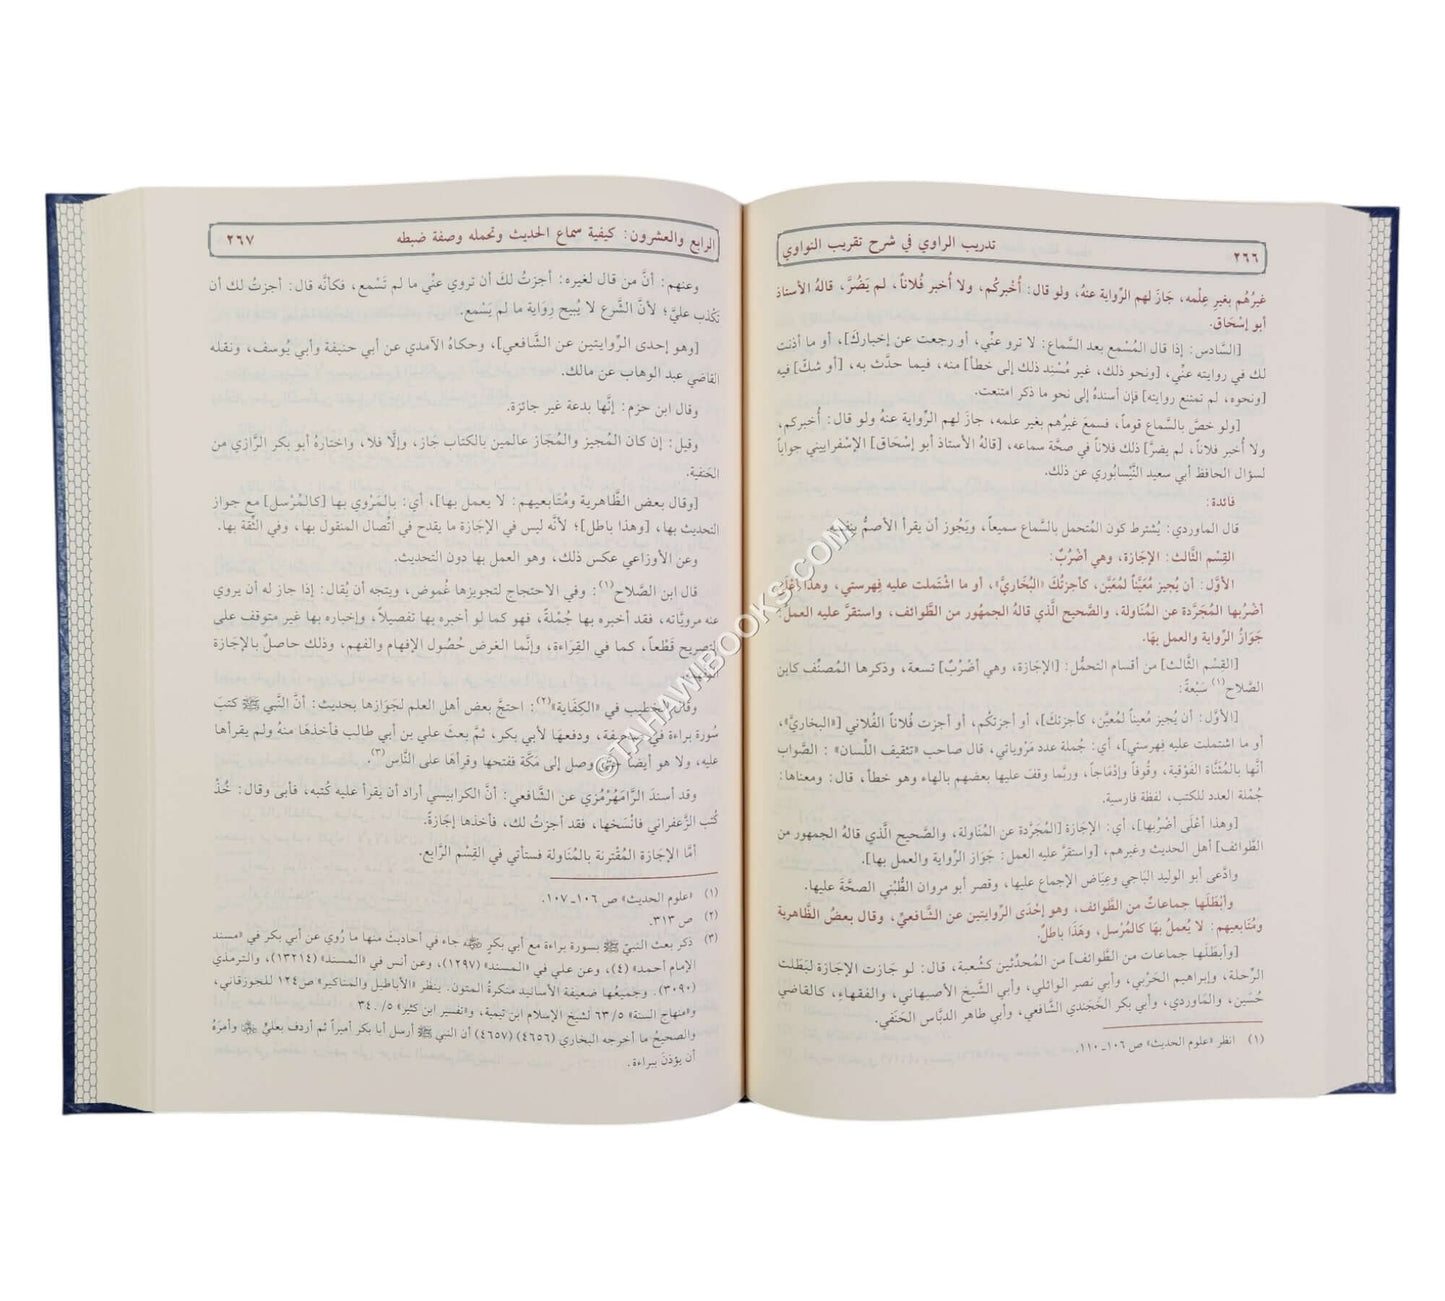 ٢٦٦
تدريب الراوي في شرح تقريب النواوي
غيرُهُم بغيرِ عِلْمه، جَازَ لهم الرِّواية عنهُ، ولو قال: أُخْبركُم، ولا أُخبر فُلاناً، لم يَضُرَّ، قالهُ الأستاذ
أبو إسْحَاق.
[السَّادس: إذا قال المُسْمع بعد السَّماع: لا تروِ عنِّي، أو رجعت عن إخباركَ]، أو ما أذنت
لك في روايته عنِّي، [ونحو ذلك، غير مُسْنِد ذلك إلى خطأ] منه، فيما حدَّث به، [أو شكَ] فيه
[ونحوه، لم تمتنع روايته] فإن أسندهُ إلى نحو ما ذكر امتنعت.
[ولو خصَّ بالسَّماع قوماً، فسمعَ غيرُهم بغير علمه، جازَ لهم الرِّواية عنهُ ولو قال: أُخبركم،
ولا أُخبر فلاناً، لم يضرَّ] ذلك فلاناً في صحَّة سماعه، [قالهُ الأستاذ أبو إسْحَاق] الإسْفراييني جواباً
لسؤال الحافظ أبي سعيد النَّيْسابُوري عن ذلك.
فائدة:
قال الماوردي: يُشترط كون المُتحمل بالسَّماع سميعاً، ويَجُوز أن يقرأ الأصمُّ بنفسه.
القِسْم الثَّالث: الإجَازة، وهي أضْرُبٌ:
الأوَّل: أن يُجيز مُعَيَّناً لمُعَيَّن، كأجزتُكَ «البُخَاريَّ»، أو ما اشْتملت عليه فِهرستي، وهذا أعْلَى
أضْرُبها المُجَرَّدة عن المُنَاولة، والصَّحيح الَّذي قالهُ الجمهُور من الطَّوائف، واستقرَّ عليه العملُ:
جَوَازُ الرِّواية والعمل بهَا.
[القِسْم الثَّالث] من أقسام التحمُّل: [الإجَازة، وهي أضْرُبٌ] تسعة، وذكرها المُصنِّف كابن
الصَّلاح(١) سَبْعةً:
[الأوَّل: أن يُجيز مُعيناً لمُعيَّن، كأجزتكَ]، أو أجزتكُم، أو أجزت فُلاناً الفُلاني [«البخاريَّ»،
أو ما اشتملت عليه فِهرستي]، أي: جُملة عدد مَرْوياتي، قال صاحب «تثقيف اللِّسان» : الصَّواب
أنَّها بالمُثنَّاة الفَوْقية، وقُوفاً وإدْمَاجاً، وربَّما وقفَ عليها بعضهم بالهاء وهو خطأ، قال: ومعناها:
جُمْلة العدد للكتب، لفظة فارسية.
[وهذا أعْلَى أضْرُبها]، أي: الإجَازة [المُجَرَّدة عن المُنَاولة، والصَّحيح الَّذي قالهُ الجمهور من
الطَّوائف] أهل الحديث وغيرهم، [واستقرَّ عليه العمل: جَوَاز الرِّواية والعمل بها].
وادَّعى أبو الوليد البَاجي وعِيَاض الإجماع عليها، وقصر أبو مروان الطُّبْني الصحَّة عليها.
وأبْطَلَها جماعاتٌ من الطَّوائف، وهو إحْدَى الرِّوايتين عن الشَّافعيِّ، وقال بعضُ الظَّاهرية
ومُتَابعيهم: لا يُعملُ بهَا كالمُرْسل، وهَذَا باطلٌ.
[وأبطلَها جماعات من الطَّوائف] من المُحدِّثين كشُعبة، قال: لو جَازت الإجَازة لبَطلت
الرِّحلة، وإبراهيم الحَرْبي، وأبي نصر الوائلي، وأبي الشَّيخ الأصبهاني، والفقهاء، كالقاضي
حُسَين، والمَاوردي، وأبي بكر الخَجَندي الشَّافعي، وأبي طاهر الدبَّاس الحَنَفي.
(١) انظر «علوم الحديث» ص ١٠٦ـ ١١٠.
الرابع والعشرون: كيفية سماع الحديث وتحمله وصفة ضبطه
٢٦٧
وعنهم: أنَّ من قال لغيره: أجزتُ لكَ أن تروي عنِّي ما لم تَسْمع، فكأنَّه قال: أجزتُ لك أن
تكْذب عليَّ؛ لأنَّ الشَّرع لا يُبيح رِوَاية ما لم يَسْمع.
[وهو إحدى الرِّوايتين عن الشَّافعي]، وحكاهُ الآمدي عن أبي حنيفة وأبي يُوسف، ونقله
القاضي عبد الوهاب عن مالك.
وقال ابن حزم: إنَّها بدعة غير جائزة.
وقيل: إن كان المُجيز والمُجَاز عالمين بالكتاب جَاز، وإلَّا فلا، واختارهُ أبو بكر الرَّازي من
الحَنفية.
[وقال بعض الظَّاهرية ومُتَابعيهم: لا يعمل بها]، أي: بالمَرْوي بها [كالمُرْسل] مع جواز
التحديث بها، [وهذا باطل]؛ لأنَّه ليس في الإجَازة ما يقدح في اتِّصال المنقول بها، وفي الثِّقة بها.
وعن الأوزاعي عكس ذلك، وهو العمل بها دون التحديث.
قال ابن الصَّلاح(١): وفي الاحتجاج لتجويزها غُموض، ويتجه أن يُقال: إذا جاز له أن يروي
عنه مرويَّاته، فقد أخبره بها جُمْلةً، فهو كما لو أخبره بها تفصيلاً، وإخباره بها غير متوقف على
التصريح قَطْعاً، كما في القِرَاءة، وإنَّما الغرض حُصُول الإفهام والفهم، وذلك حاصلٌ بالإجَازة
وقال الخطيب في «الكِفَاية»(٢): احتجَّ بعض أهل العلم لجَوَازها بحديث: أنَّ النَّبي ﷺ كتبَ
سُورة براءة في صحيفة، ودفعهَا لأبي بكر، ثمَّ بعثَ علي بن أبي طالب فأخذهَا منهُ ولم يقرأها
عليه، ولا هو أيضاً حتى وصل إلى مَكَّة ففتحها وقرأهَا على النَّاس(٣).
وقد أسندَ الرَّامَهُرْمُزي عن الشَّافعي: أنَّ الكرابيسي أراد أن يقرأ عليه كُتبه، فأبىٰ وقال: خُذْ
كُتب الزَّعفراني فانْسَخها، فقد أجزتُ لك، فأخذها إجَازةً.
أمَّا الإجَازة المُقْترنة بالمُنَاولة فستأتي في القِسْم الرَّابع.
(١) «علوم الحديث» ص ١٠٦ـ ١٠٧.
(٢) ص ٣١٣.
(٣) ذكر بعث النبيّ ﷺ بسورة براءة مع أبي بكر ﷺ جاء في أحاديثَ منها ما رُوي عن أبي بكر في «مسند
الإمام أحمد» (٤)، وعن علي في «المسند» (١٢٩٧)، وعن أنس في «المسند» (١٣٢١٤)، والترمذي
(٣٠٩٠). وجميعُها ضعيفة الأسانيد منكرةُ المتون. ينظر «الأباطيل والمناكير» ص١٢٤ للجوزقاني،
و«منهاج السنة» ٦٣/٥ لشيخ الإسلام ابن تيمية، و«تفسير ابن كثير» ٥/. ٣٤.
والصحيحُ ما أخرجه البخاري (٤٦٥٦) (٤٦٥٧) أن النبي ﷺ أرسل أبا بكر أميراً ثم أردف بعليٍّ وأمرَهُ
أن يؤذنَ ببراءة.
©TAHAWIBOOKS.COM